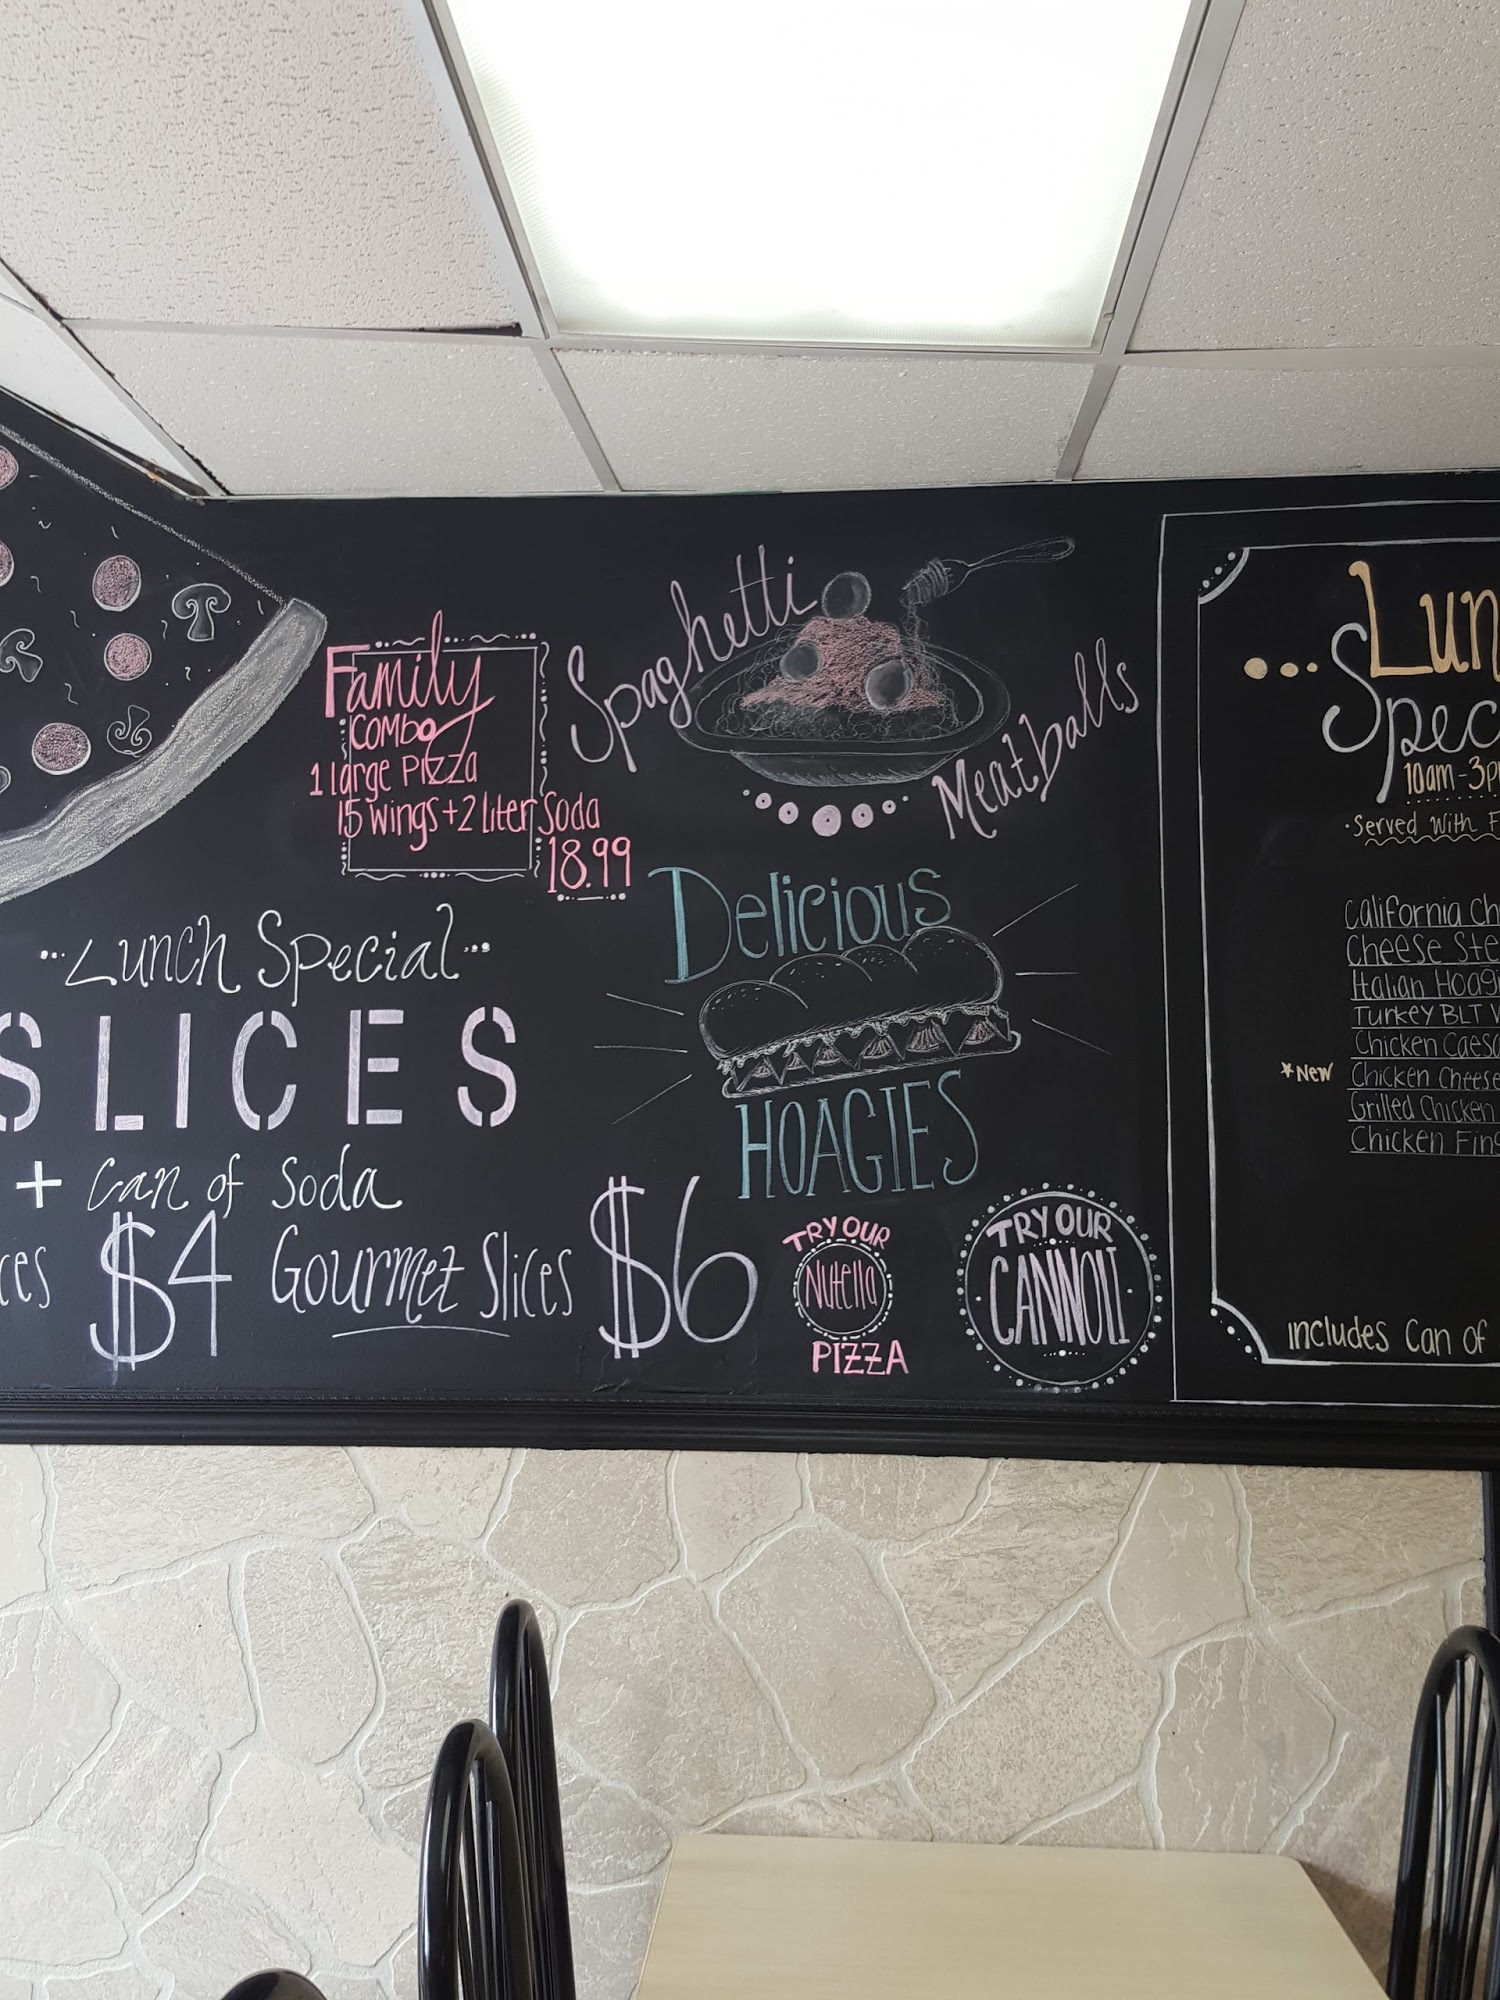 Family
Combo
1 large Pizza
15 wings + 2 liter Soda
18.99
Spaghetti
Meatballs
Lunch Special
SLICES
+ Can of Soda
$4 Gourmet Slices $6
Delicious
HOAGIES
TRY OUR
Nutella
PIZZA
TRY OUR
CANNOLI
10am-3
Served With
California
Cheese
Italian
Turkey BLT
Chicken
*New Chicken Cheese
Grilled Chicken
Chicken
includes Can of